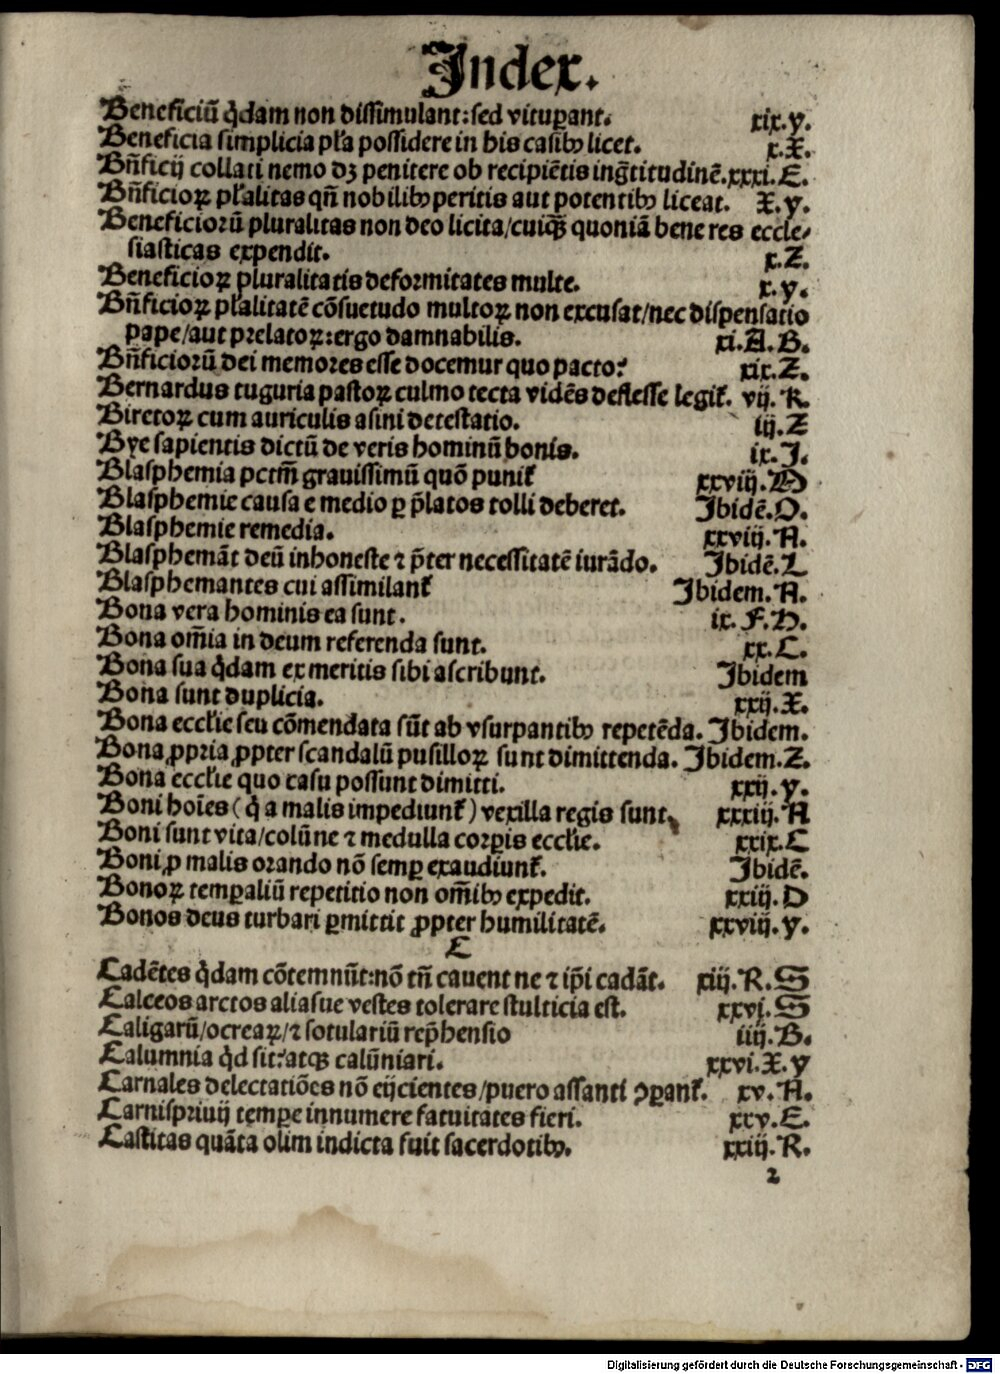 Index.
Beneficiū q̄dam non dissimulant: sed vituꝑant. xix.y.
Beneficia simplicia pl̄a possidere in his casibꝰ licet. x.X.
Bn̄ficij collati nemo dꝫ penitere ob recipiētis ingr̄titudinē. xxxi.E.
Bn̄ficioꝝ pl̄alitas qn̄ nobilibꝰ peritis aut potentibꝰ liceat. X.y.
Beneficiorū pluralitas non deo licita/cuiqꝫ quoniā bene res eccle⸗
siasticas expendit. x.Z.
Beneficioꝝ pluralitatis deformitates multe. x.y.
Bn̄ficioꝝ pl̄alitatē cōsuetudo multoꝝ non excusat/nec dispensatio
pape/aut prelatoꝝ: ergo damnabilis. xi.A.B.
Bn̄ficiorū dei memores esse docemur quo pacto? xix.Z.
Bernardus tuguria pastoꝝ culmo tecta vidēs deflesse legit᷑. vij.R.
Biretoꝝ cum auriculis asini detestatio. iij.Z
Bye sapientis dictū de veris hominū bonis. ix.I.
Blasphemia pctm̄ grauissimū quō punit᷑ xxviij.M
Blasphemie causa e medio ꝑ p̄latos tolli deberet. Ibidē.O.
Blasphemie remedia. xxviij.A.
Blasphemāt deū inhoneste ⁊ p̄ter necessitatē iurādo. Ibidē.L
Blasphemantes cui assimilant᷑ Ibidem.A.
Bona vera hominis ea sunt. ix.F.H.
Bona om̄ia in deum referenda sunt. xx.C.
Bona sua q̄dam ex meritis sibi ascribunt. Ibidem
Bona sunt duplicia. xxij.X.
Bona eccl̄ie seu cōmendata sūt ab vsurpantibꝰ repetēda. Ibidem.
Bona ꝓpria ꝓpter scandalū pusilloꝝ sunt dimittenda. Ibidem.Z.
Bona eccl̄ie quo casu possunt dimitti. xxij.y.
Boni hoīes (q̄ a malis impediunt᷑) vexilla regis sunt. xxxiij.A
Boni sunt vita/colūne ⁊ medulla corꝑis eccl̄ie. xxix.C
Boni ꝓ malis orando nō semꝑ exaudiunt᷑. Ibidē.
Bonoꝝ temꝑaliū repetitio non om̄ibꝰ expedit. xxiij.D
Bonos deus turbari ꝑmittit ꝓpter humilitatē. xxviij.y.
C
Cadētes q̄dam cōtemnūt: nō tn̄ cauent ne ⁊ ip̄i cadāt. xiij.R.S
Calceos arctos aliasue vestes tolerare stulticia est. xxvj.S
Caligarū/ocreaꝝ/⁊ sotulariū rep̄hensio iiij.B.
Calumnia q̄d sit? atqꝫ calūniari. xxvi.X.y
Carnales delectatiōes nō eijcientes/puero assanti ꝯꝑant᷑. xv.A.
Carnispriuij temꝑe innumere fatuitates fieri. xxv.E.
Castitas quāta olim indicta fuit sacerdotibꝰ. xxiij.R.
2
Digitalisierung gefördert durch die Deutsche Forschungsgemeinschaft - DFG